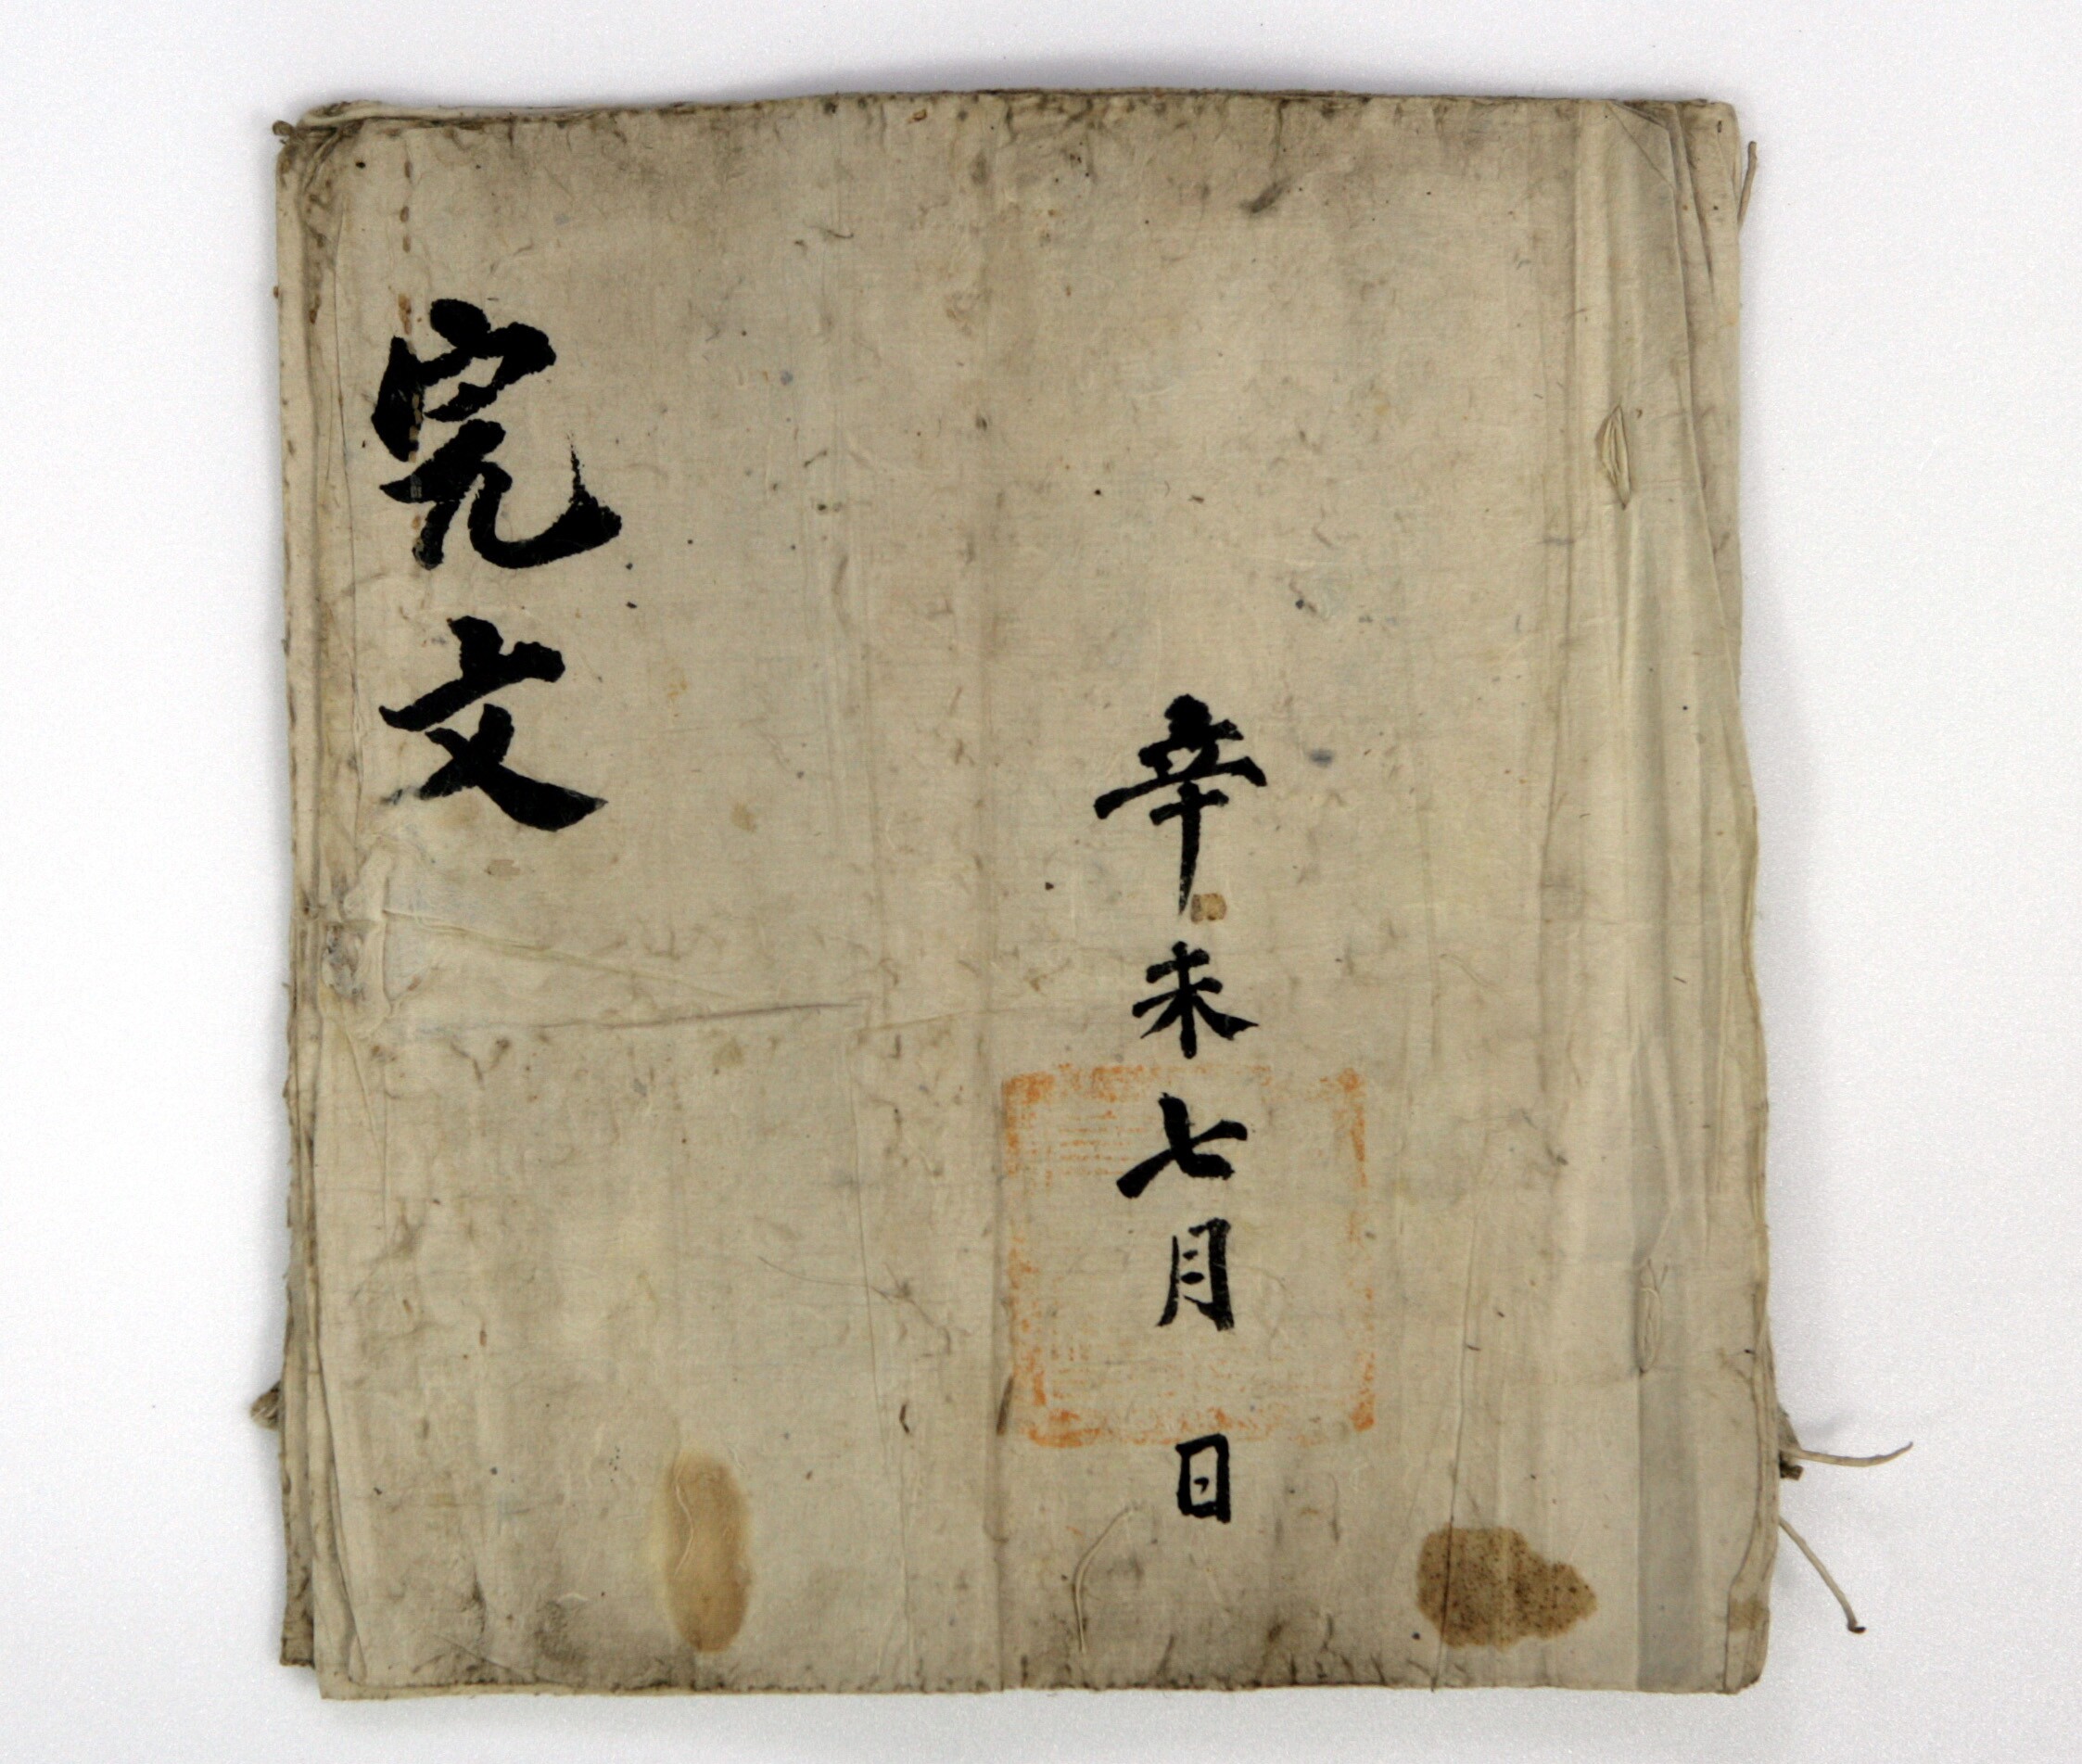 辛未七月 日
完文